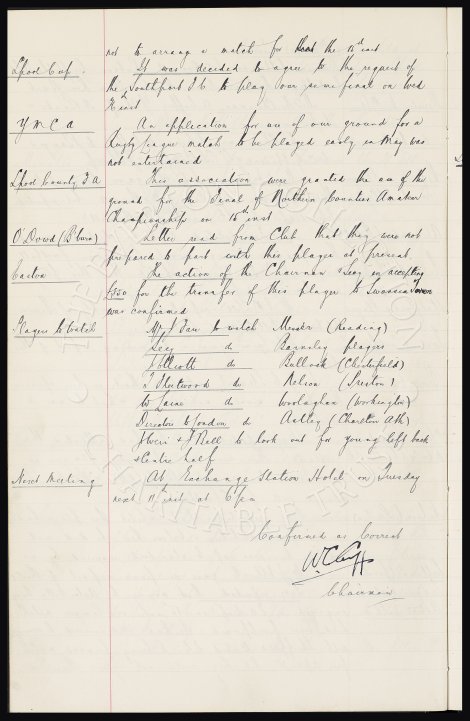 not to arrange a match for the 15th inst
Lpool Cup. It was decided to agree to the request of
the Southport F C to play our semi final on Wed
inst
Y M C A An application for use of our ground for a
Rugby League match to be played early in May was
not entertained
Lpool County F A This association were granted the use of the
ground for the Final of Northern Counties Amateur
Championship on 15th inst
O'Dowd (B'burn) Letter read from Club that they were not
prepared to part with this player at present.
The action of the Chairman & Secy in accepting
£550 for the transfer of this player to Swansea Town
was confirmed
Players to Watch Mr J Fare to watch (Reading)
Secy do Barnsley players
do Bullock (Chesterfield)
do Nelson (Preston)
do (Workington)
Director to London do Astley (Charlton Ath)
& J Bell to look out for young left back
& Centre half
Next Meeting At Exchange Station Hotel on Tuesday
next 11th inst at 6 pm
Confirmed as Correct
W C Cuff
Chairman